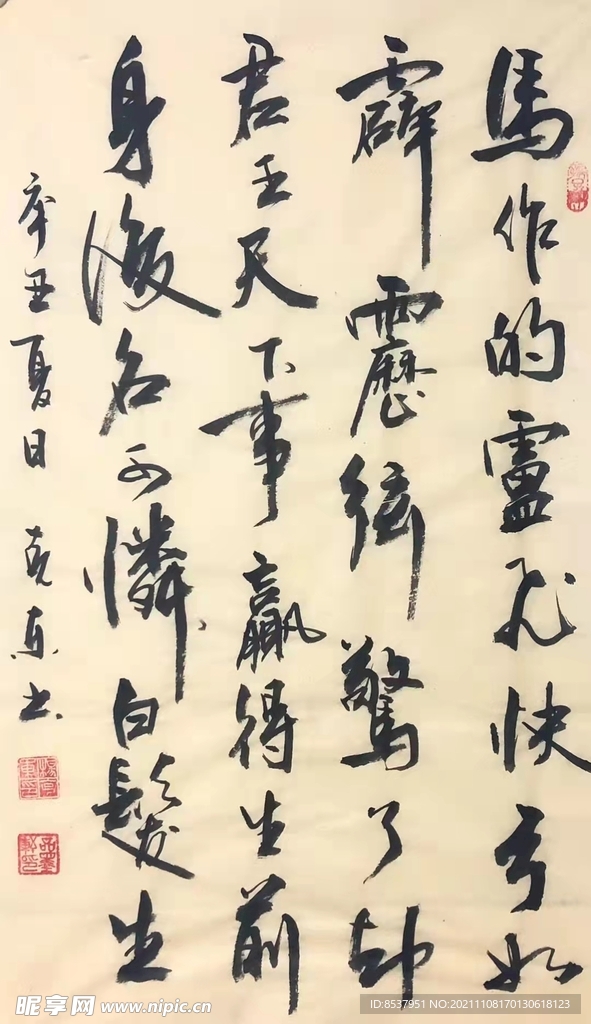 馬作的盧飛快弓如
霹靂絃驚了却
君王天下事贏得生前
身後名可憐白髮生
辛丑夏日 克东书
昵享网 www.nipic.cn
ID:8537951 NO:20211108170130618123